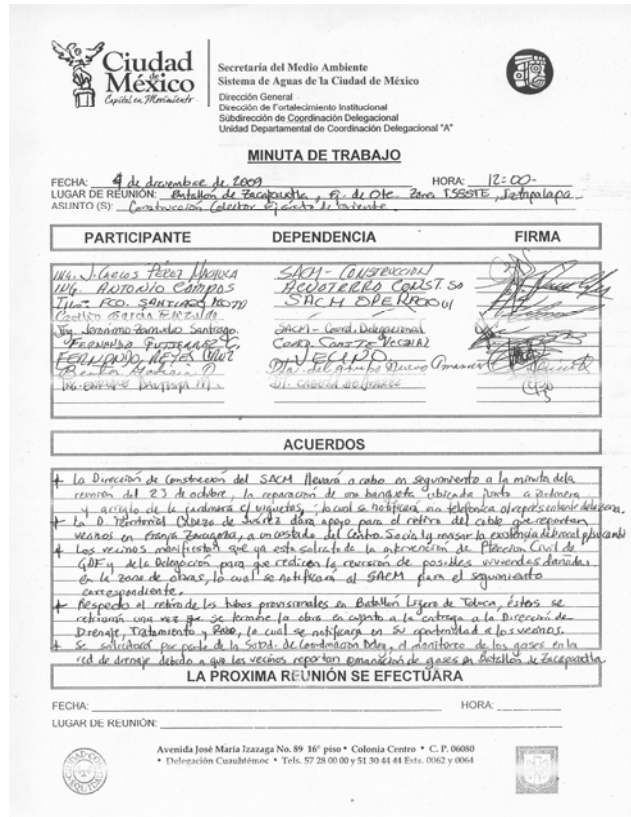 Ciudad de México
Capital en Movimiento
Secretaría del Medio Ambiente
Sistema de Aguas de la Ciudad de México
Dirección General
Dirección de Fortalecimiento Institucional
Subdirección de Coordinación Delegacional
Unidad Departamental de Coordinación Delegacional "A"
MINUTA DE TRABAJO
FECHA: 4 de diciembre de 2009 HORA: 12:00-
LUGAR DE REUNIÓN: Batallón de Zacapoaxtla, Ej. de Ote. Zona ISSSTE, Iztapalapa
ASUNTO (S): Construcción Colector Ejército de Oriente
PARTICIPANTE DEPENDENCIA FIRMA
ING. J. CARLOS PÉREZ MACHUCA SACM - CONSTRUCCION
ING. ANTONIO CAMPOS CONST.
FCO. SANTIAGO SACM
García Elizalde
Ing. Jeronimo Santiago. SACM - Coord. Delegacional
FERNANDO GUTIERREZ C. COORD. COMITE VECINAL
FERNANDO REYES CRUZ VECINO
del Grupo Nuevo Amanecer
ING. ENRIQUE BAUTISTA M. DT. CABEZA DE JUAREZ
ACUERDOS
+ La Dirección de Construcción del SACM llevará a cabo en seguimiento a la minuta de la
reunión del 23 de octubre, la reparación de una banqueta ubicada junto a jardinera
y arreglo de la jardinera c/ viguetas, lo cual se notificará via telefónica al representante de la zona.
+ La D. Territorial Cabeza de Juárez dara apoyo para el retiro del cable que reportan
vecinos en Franja Zaragoza, a un costado del Centro Social y revisar la existencia del
+ Los vecinos manifiestan que ya esta solicitada la intervención de Protección Civil de
GDF y de la Delegación para que realicen la revisión de posibles viviendas dañadas,
en la zona de obras, lo cual se notificará al SACM para el seguimiento
correspondiente.
+ Respecto al retiro de los tubos provisionales en Batallón Ligero de Toluca, éstos se
retirarán una vez que se termine la obra en cuanto a la entrega a la Dirección de
Drenaje, Tratamiento y Reuso, lo cual se notificará en su oportunidad a los vecinos.
+ Se solicitará por parte de la Subd. de Coordinación Deleg. el monitoreo de los gases en la
red de drenaje debido a que los vecinos reportan emanación de gases en Batallón de Zacapoaxtla
LA PROXIMA REUNIÓN SE EFECTUARA
FECHA: HORA:
LUGAR DE REUNIÓN:
Avenida José María Izazaga No. 89 16° piso • Colonia Centro • C. P. 06080
• Delegación Cuauhtémoc • Tels. 57 28 00 00 y 51 30 44 44 Exts. 0062 y 0064